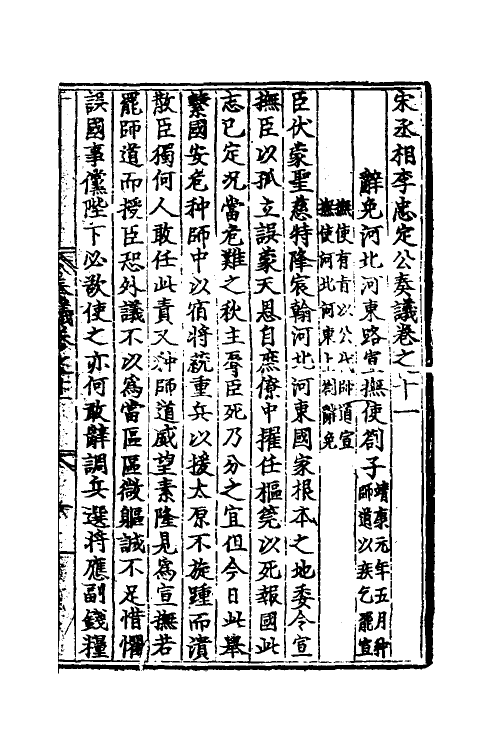 宋丞相李忠定公奏議卷之十一
辭免河北河東路宣撫使劄子靖康元年五月种師道以疾乞罷宣
撫使有旨以公代師道宣撫使河北河東上劄辭免
臣伏蒙聖慈特降宸翰河北河東國家根本之地委令宣
撫臣以孤立誤蒙天恩自庶僚中擢任樞筦以死報國此
志已定況當危難之秋主辱臣死乃分之宜但今日此舉
繫國安危种師中以宿將統重兵以援太原不旋踵而潰
散臣獨何人敢任此責又种師道威望素隆見為宣撫若
罷師道而授臣恐外議不以為當區區微軀誠不足惜懼
誤國事儻陛下必欲使之亦何敢辭調兵選將應副錢糧